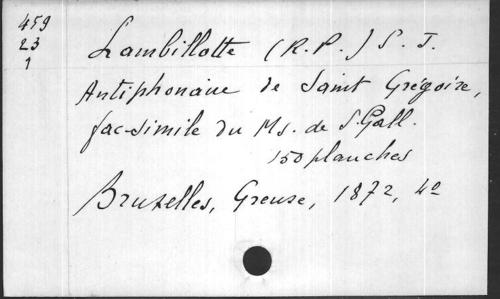 459
23
1
Lambillotte (R. P.) S. J.
Antiphonaire de Saint Grégoire,
fac-simile du Ms. de S. Gall.
150 planches
Bruxelles, Greuse, 1872, 4º